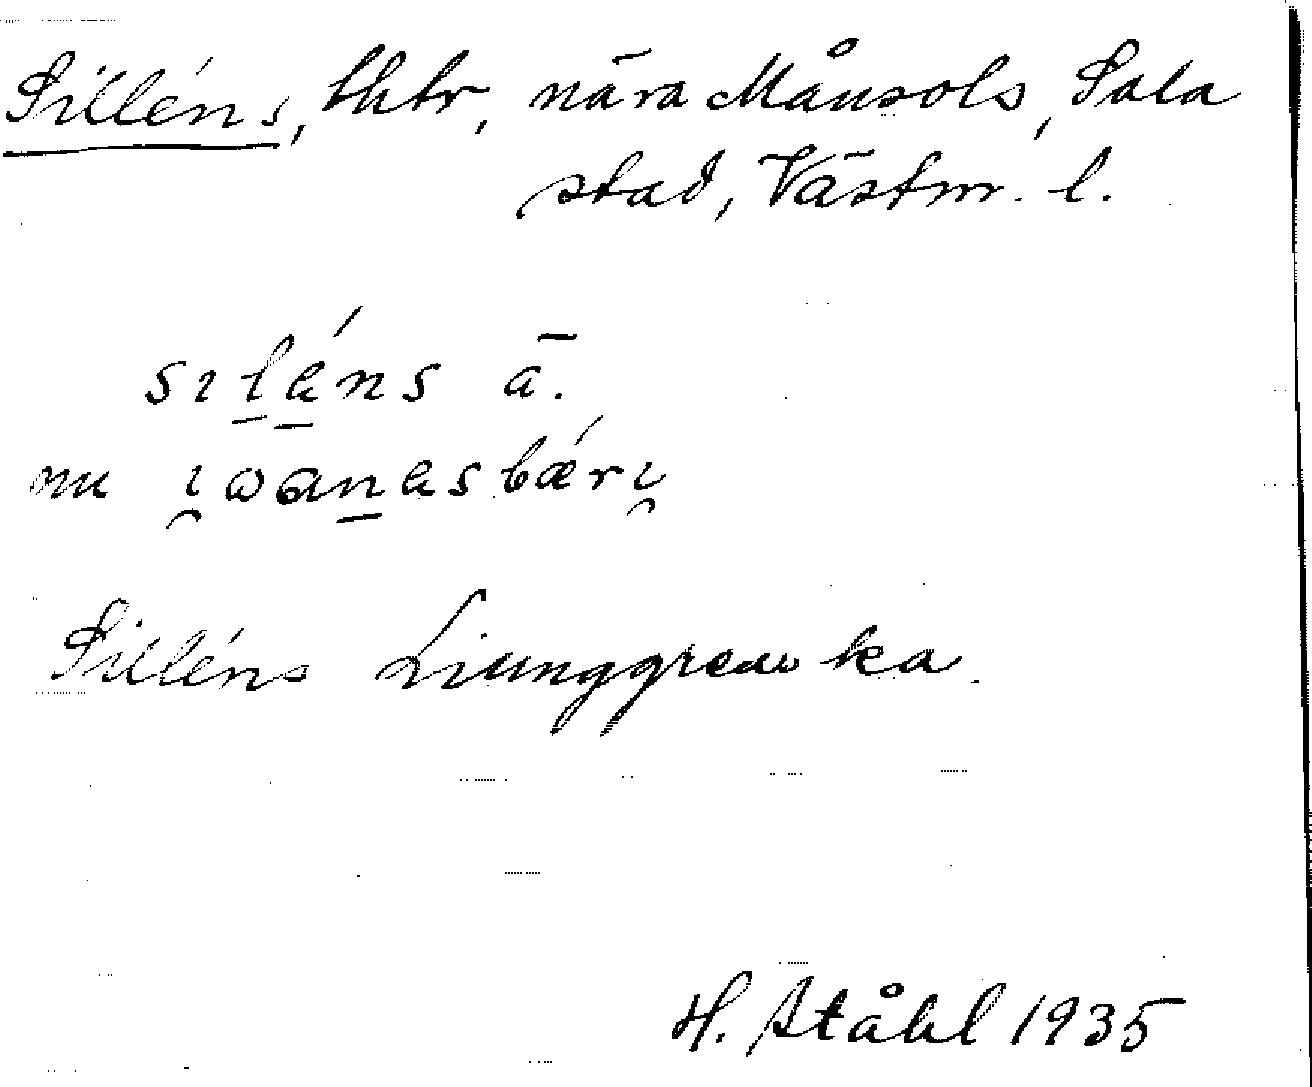 Silléns, lhtr, nära Månsols, Sala
stad, Västm. l.
sıléns ā.
nu ıwanesbǽrı
Silléns Liunggrenska.
H. Ståhl 1935